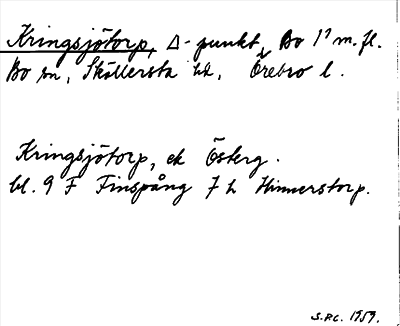 Kringsjötorp, Δ-punkt, Bo 1⁷ m. fl.
Bo sn, Sköllersta hd, Örebro l.
Kringsjötorp, ek Österg.
bl. 9 F Finspång 7 h Hinnerstorp.
S.P.C. 1959.